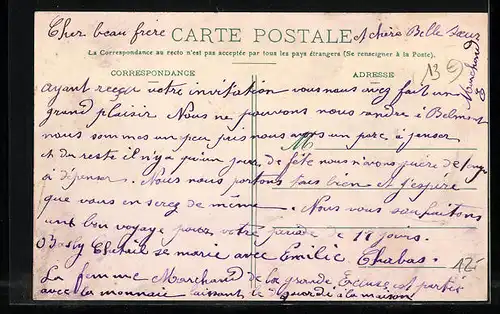 Cher beau frère CARTE POSTALE et chère Belle Sœur
La Correspondance au recto n'est pas acceptée par tous les pays étrangers (Se renseigner à la Poste).
CORRESPONDANCE ADRESSE
13
ayant reçu votre invitation vous nous avez fait un
grand plaisir. Nous ne pouvons nous rendre à Belmont
nous sommes un peu pris nous avons un parc à
et du reste il n'y a qu'un jour de fête nous n'avons guère de
à dépenser. Nous nous portons tous bien et j'espère
que vous en serez de même. Nous vous souhaitons
un bon voyage pour votre 15 jours.
se marie avec Emilie Chabas.
La femme Marchand de la grande est partie
avec la monnaie laissant le à la maison
Marchand
12.-